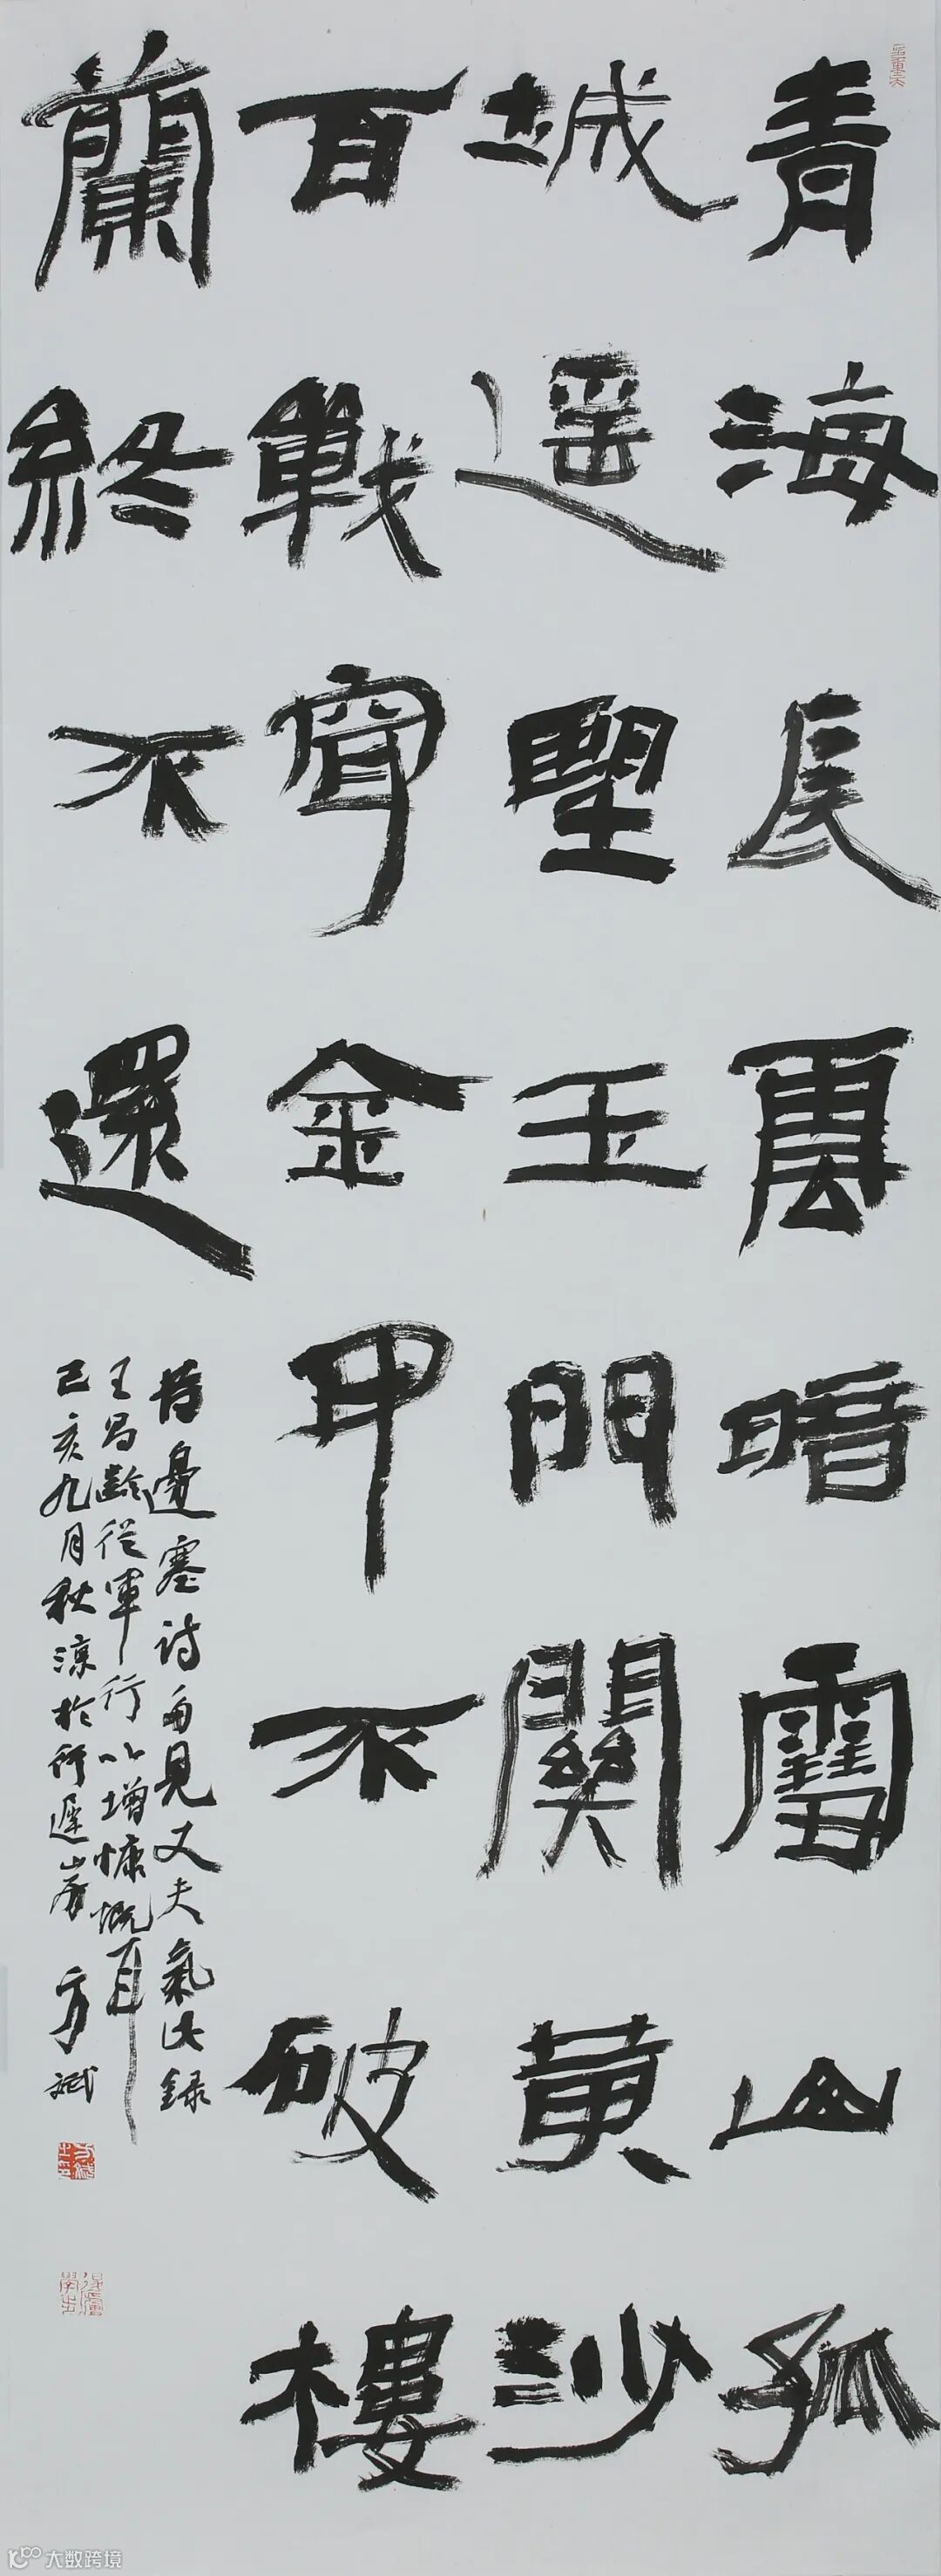 青海長雲暗雪山孤
城遥望玉門關黄沙
百戰穿金甲不破樓
蘭終不還
邊塞詩見丈夫氣此録
王昌齡從軍行以增慷慨耳
己亥九月秋涼於遲山房 方斌
大数跨境